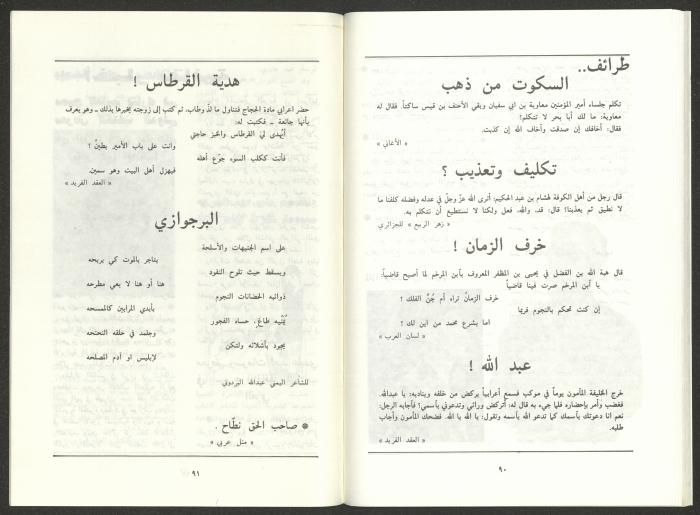 طرائف..
السكوت من ذهب
تكلم جلساء أمير المؤمنين معاوية بن ابي سفيان وبقي الأحنف بن قيس ساكتاً. فقال له
معاوية: ما لك أبا بحر لا تتكلم؟
فقال: أخافك إن صدقت وأخاف الله إن كذبت.
« الأغاني »
تكليف وتعذيب ؟
قال رجل من أهل الكوفة لهشام بن عبد الحكيم: أترى الله عزّ وجلّ في عدله وفضله كلفنا ما
لا نطيق ثم يعذبنا؟ قال: قد، والله، فعل ولكنا لا نستطيع أن نتكلم به.
« زهر الربيع » للجزائري
خرف الزمان !
قال هبة الله بن الفضل في يحيى بن المظفر المعروف بأبن المرخم لما أصبح قاضياً:
يا أبن المرخم صرت فينا قاضياً
خرف الزمانُ تراه أم جُنَّ الفلك ؟
إن كنت تحكم بالنجوم فربما
اما بشرع محمد من اين لك ؟
« لسان العرب »
عبد الله !
خرج الخليفة المأمون يوماً في موكب فسمع أعرابياً يركض من خلفه ويناديه: يا عبدالله.
فغضب وأمر بإحضاره فلما جيء به قال له: أتركض ورائي وتدعوني بأسمي؟ فأجابه الرجل:
نعم انا دعوتك بأسمك كما تدعو الله بأسمه وتقول: يا الله يا الله. فضحك المأمون وأجاب
طلبه.
« العقد الفريد »
٩٠
هدية القرطاس !
حضر اعرابي مادة الحجاج فتناول ما لذّ وطاب، ثم كتب إلى زوجته يخبرها بذلك ـ وهو يعرف
بأنها جائعة ـ فكتبت له:
أيُهدى لي القرطاس والخبز حاجتي
وانت على باب الأمير بطينُ ؟
فأنت ككلب السوء جوّع أهله
فيهزل أهل البيت وهو سمين.
« العقد الفريد »
البرجوازي
على اسم الجنيهات والأسلحة
يتاجر بالموت كي يربحه
ويسقط حيث تلوح النقود
هنا أو هنا لا يعي مطرحه
ذوائبه لحضانات النجوم
بأيدي المرابين كالممسحه
يُمَنّيه طاغٍ، حساء الفجور
وجلمد في حلقه النحنحه
يجود بأشلائه ولتكن
لإبليس او آدم المصلحه
للشاعر اليمني عبدالله البردوني
● صاحب الحق نطّاح .
« مثل عربي »
٩١